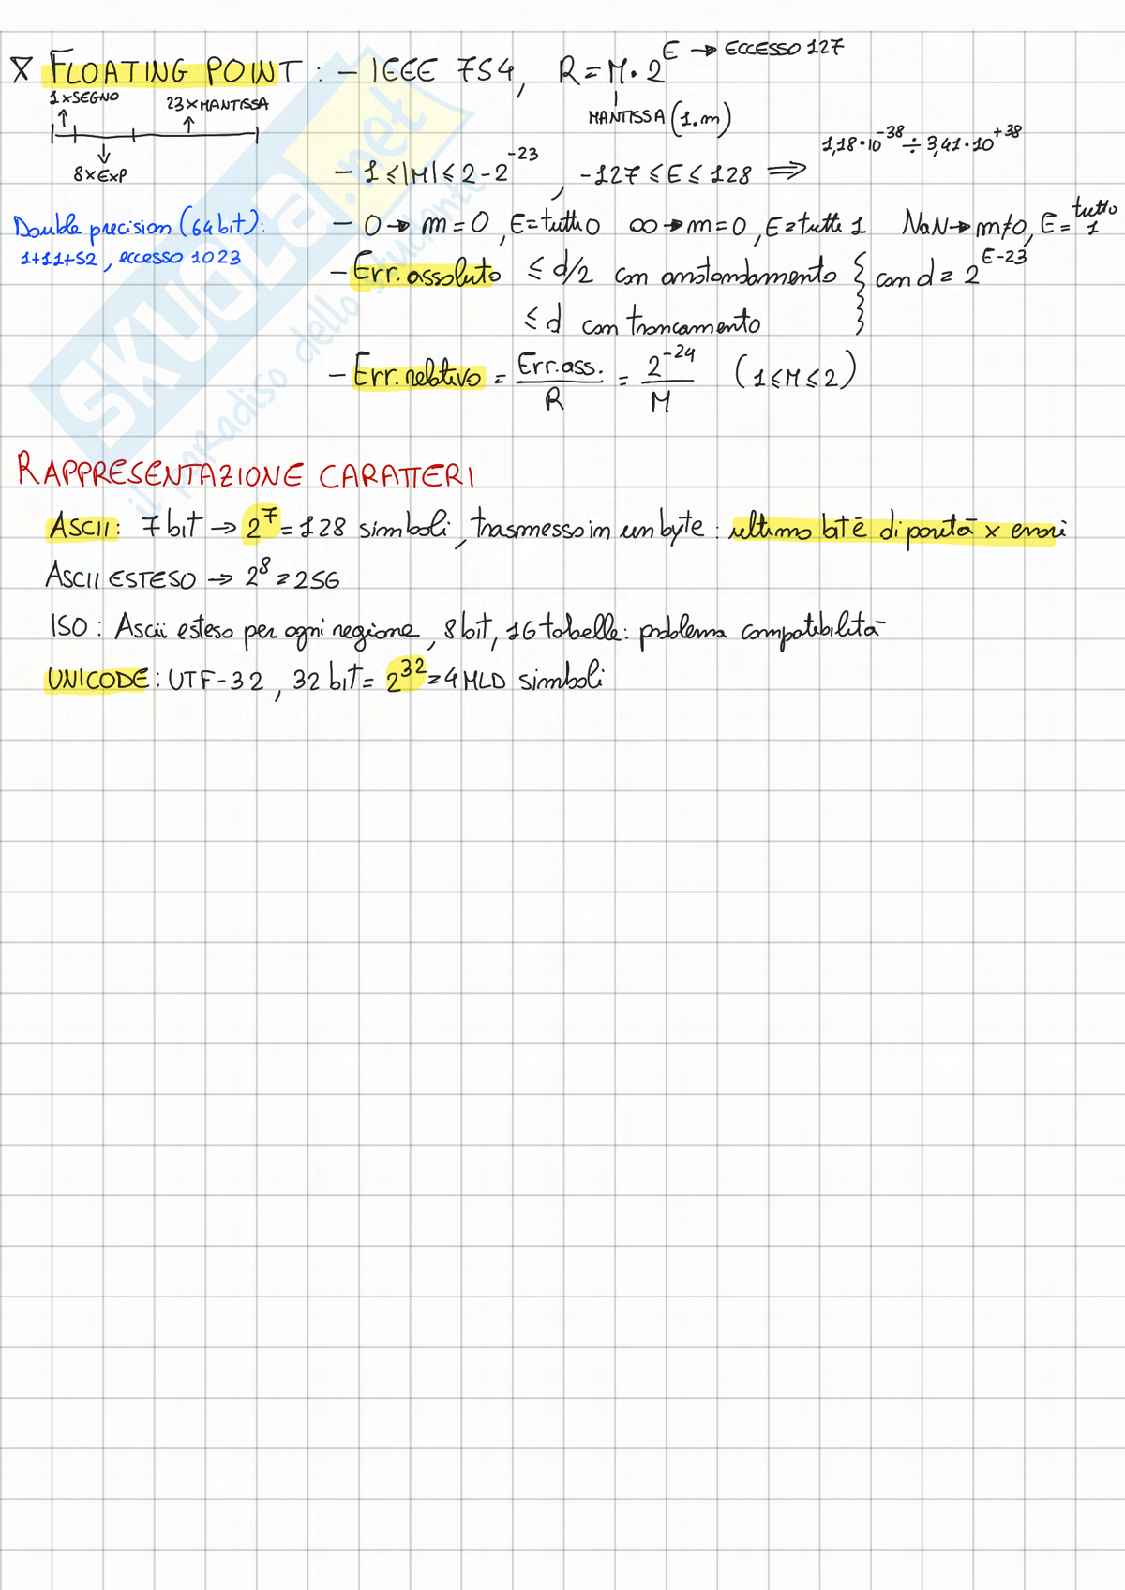 X FLOATING POINT : - IEEE 754, R = M · 2^E → ECCESSO 127
1 x SEGNO 23 x MANTISSA
MANTISSA (1.m)
8 x EXP
- 1 ≤ |M| ≤ 2 - 2^-23, -127 ≤ E ≤ 128 ⇒ 1,18·10^-38 ÷ 3,41·10^+38
Double precision (64 bit):
1+11+52, eccesso 1023
- 0 → m = 0, E = tutti 0 ∞ → m = 0, E = tutti 1 NaN → m ≠ 0, E = tutto 1
- Err. assoluto ≤ d/2 con arrotondamento } con d = 2^E-23
≤ d con troncamento
- Err. relativo = Err. ass. / R = 2^-24 / M (1 ≤ M ≤ 2)
RAPPRESENTAZIONE CARATTERI
ASCII: 7 bit → 2^7 = 128 simboli, trasmesso in un byte: ultimo bit è di parità x errori
ASCII ESTESO → 2^8 = 256
ISO: Ascii esteso per ogni regione, 8 bit, 16 tabelle: problema compatibilità
UNICODE: UTF-32, 32 bit = 2^32 = 4 MLD simboli
SKUOLA.net
il paradiso dello studente